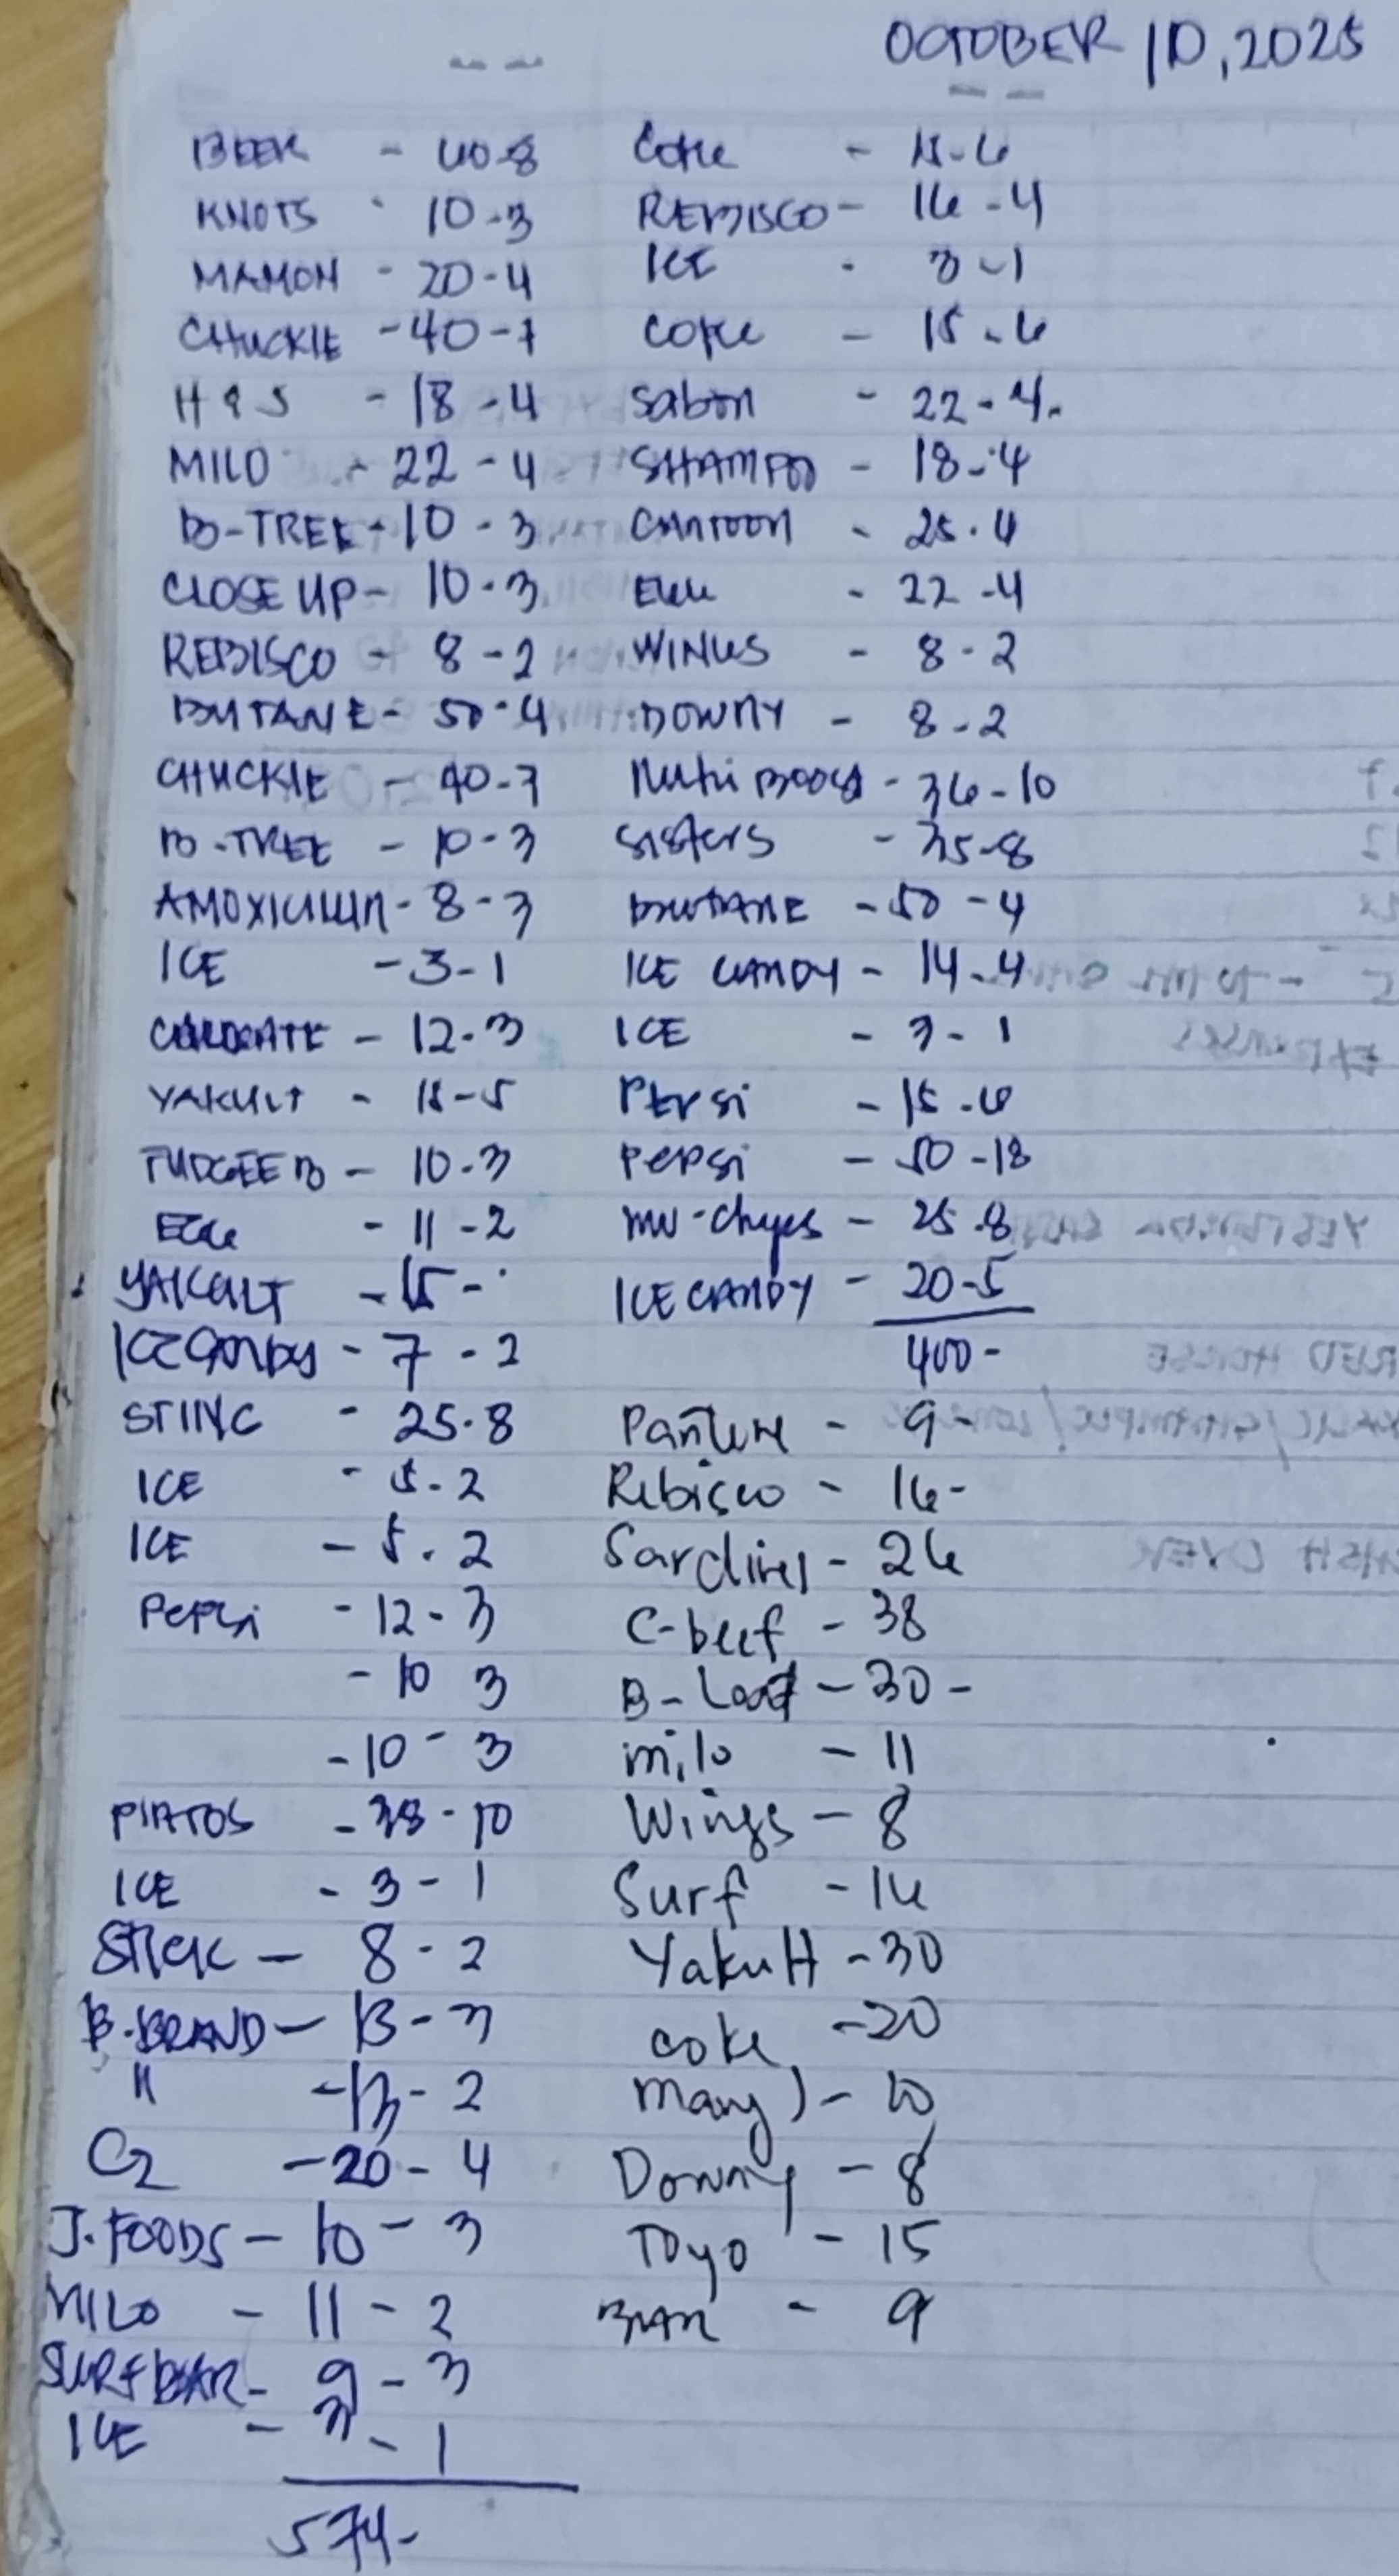 OCTOBER 10, 2025
BEER - 40-8
KNOTS - 10-3
MAMON - 20-4
CHUCKIE - 40-7
H&S - 18-4
MILO - 22-4
B-TREE - 10-3
CLOSE UP - 10-3
REBISCO - 8-2
BUTANE - 50-4
CHUCKIE - 40-7
B-TREE - 10-3
AMOXICILLIN - 8-3
ICE - 3-1
- 12-3
YAKULT - 15-5
FUDGEE B - 10-3
EGG - 11-2
YAKULT - 15-
ICE CANDY - 7-2
STING - 25-8
ICE - 5-2
ICE - 5-2
PEPSI - 12-3
- 10 3
- 10-3
PIATOS - 38-10
ICE - 3-1
STICK - 8-2
B-BRAND - 13-3
" - 13-2
C2 - 20-4
J.FOODS - 10-3
MILO - 11-2
SURF BAR - 9-3
ICE - 3-1
574-
Coke - 15-6
REBISCO - 16-4
ICE - 3-1
Coke - 15-6
Sabon - 22-4
SHAMPOO - 18-4
CANTOON - 25-4
EGG - 22-4
WINGS - 8-2
DOWNY - 8-2
Nutri Boost - 36-10
Sisters - 35-8
BUTANE - 50-4
ICE CANDY - 14-4
ICE - 3-1
Pepsi - 15-6
Pepsi - 50-18
- 25-8
ICE CANDY - 20-5
400-
Pantene - 9-
Rebisco - 16-
Sardines - 26
C-beef - 38
B-Loaf - 30-
milo - 11
Wings - 8
Surf - 16
Yakult - 30
coke - 20
- 10
Downy - 8
Toyo - 15
BEAR - 9